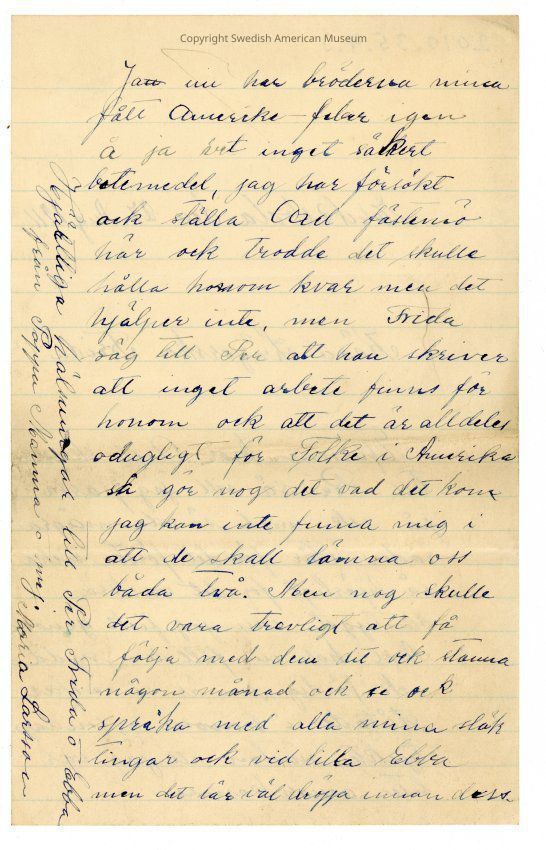 Copyright Swedish American Museum
Jaa nu har bröderna mina
fått Amerike-feber igen
å ja vet inget säkert
botemedel, jag har försökt
ock ställa Carl fästemö
här ock trodde det skulle
hålla honom kvar men det
hjälper inte, men Frida
säg till Per att han skriver
att inget arbete finns för
honom ock att det är alldeles
odugligt för Folke i Amerika
så gör nog det vad det kom
jag kan inte finna mig i
att de skall lämna oss
båda två. Men nog skulle
det vara trevligt att få
följa med dem dit ock stanna
någon månad ock se ock
språka med alla mina släk
tingar ock vid lilla Ebba
men det lär väl dröja innan dess.
Hjärtliga hälsningar till Per Frida o Ebba
från Pappa Mamma o mej. Maria Larsson